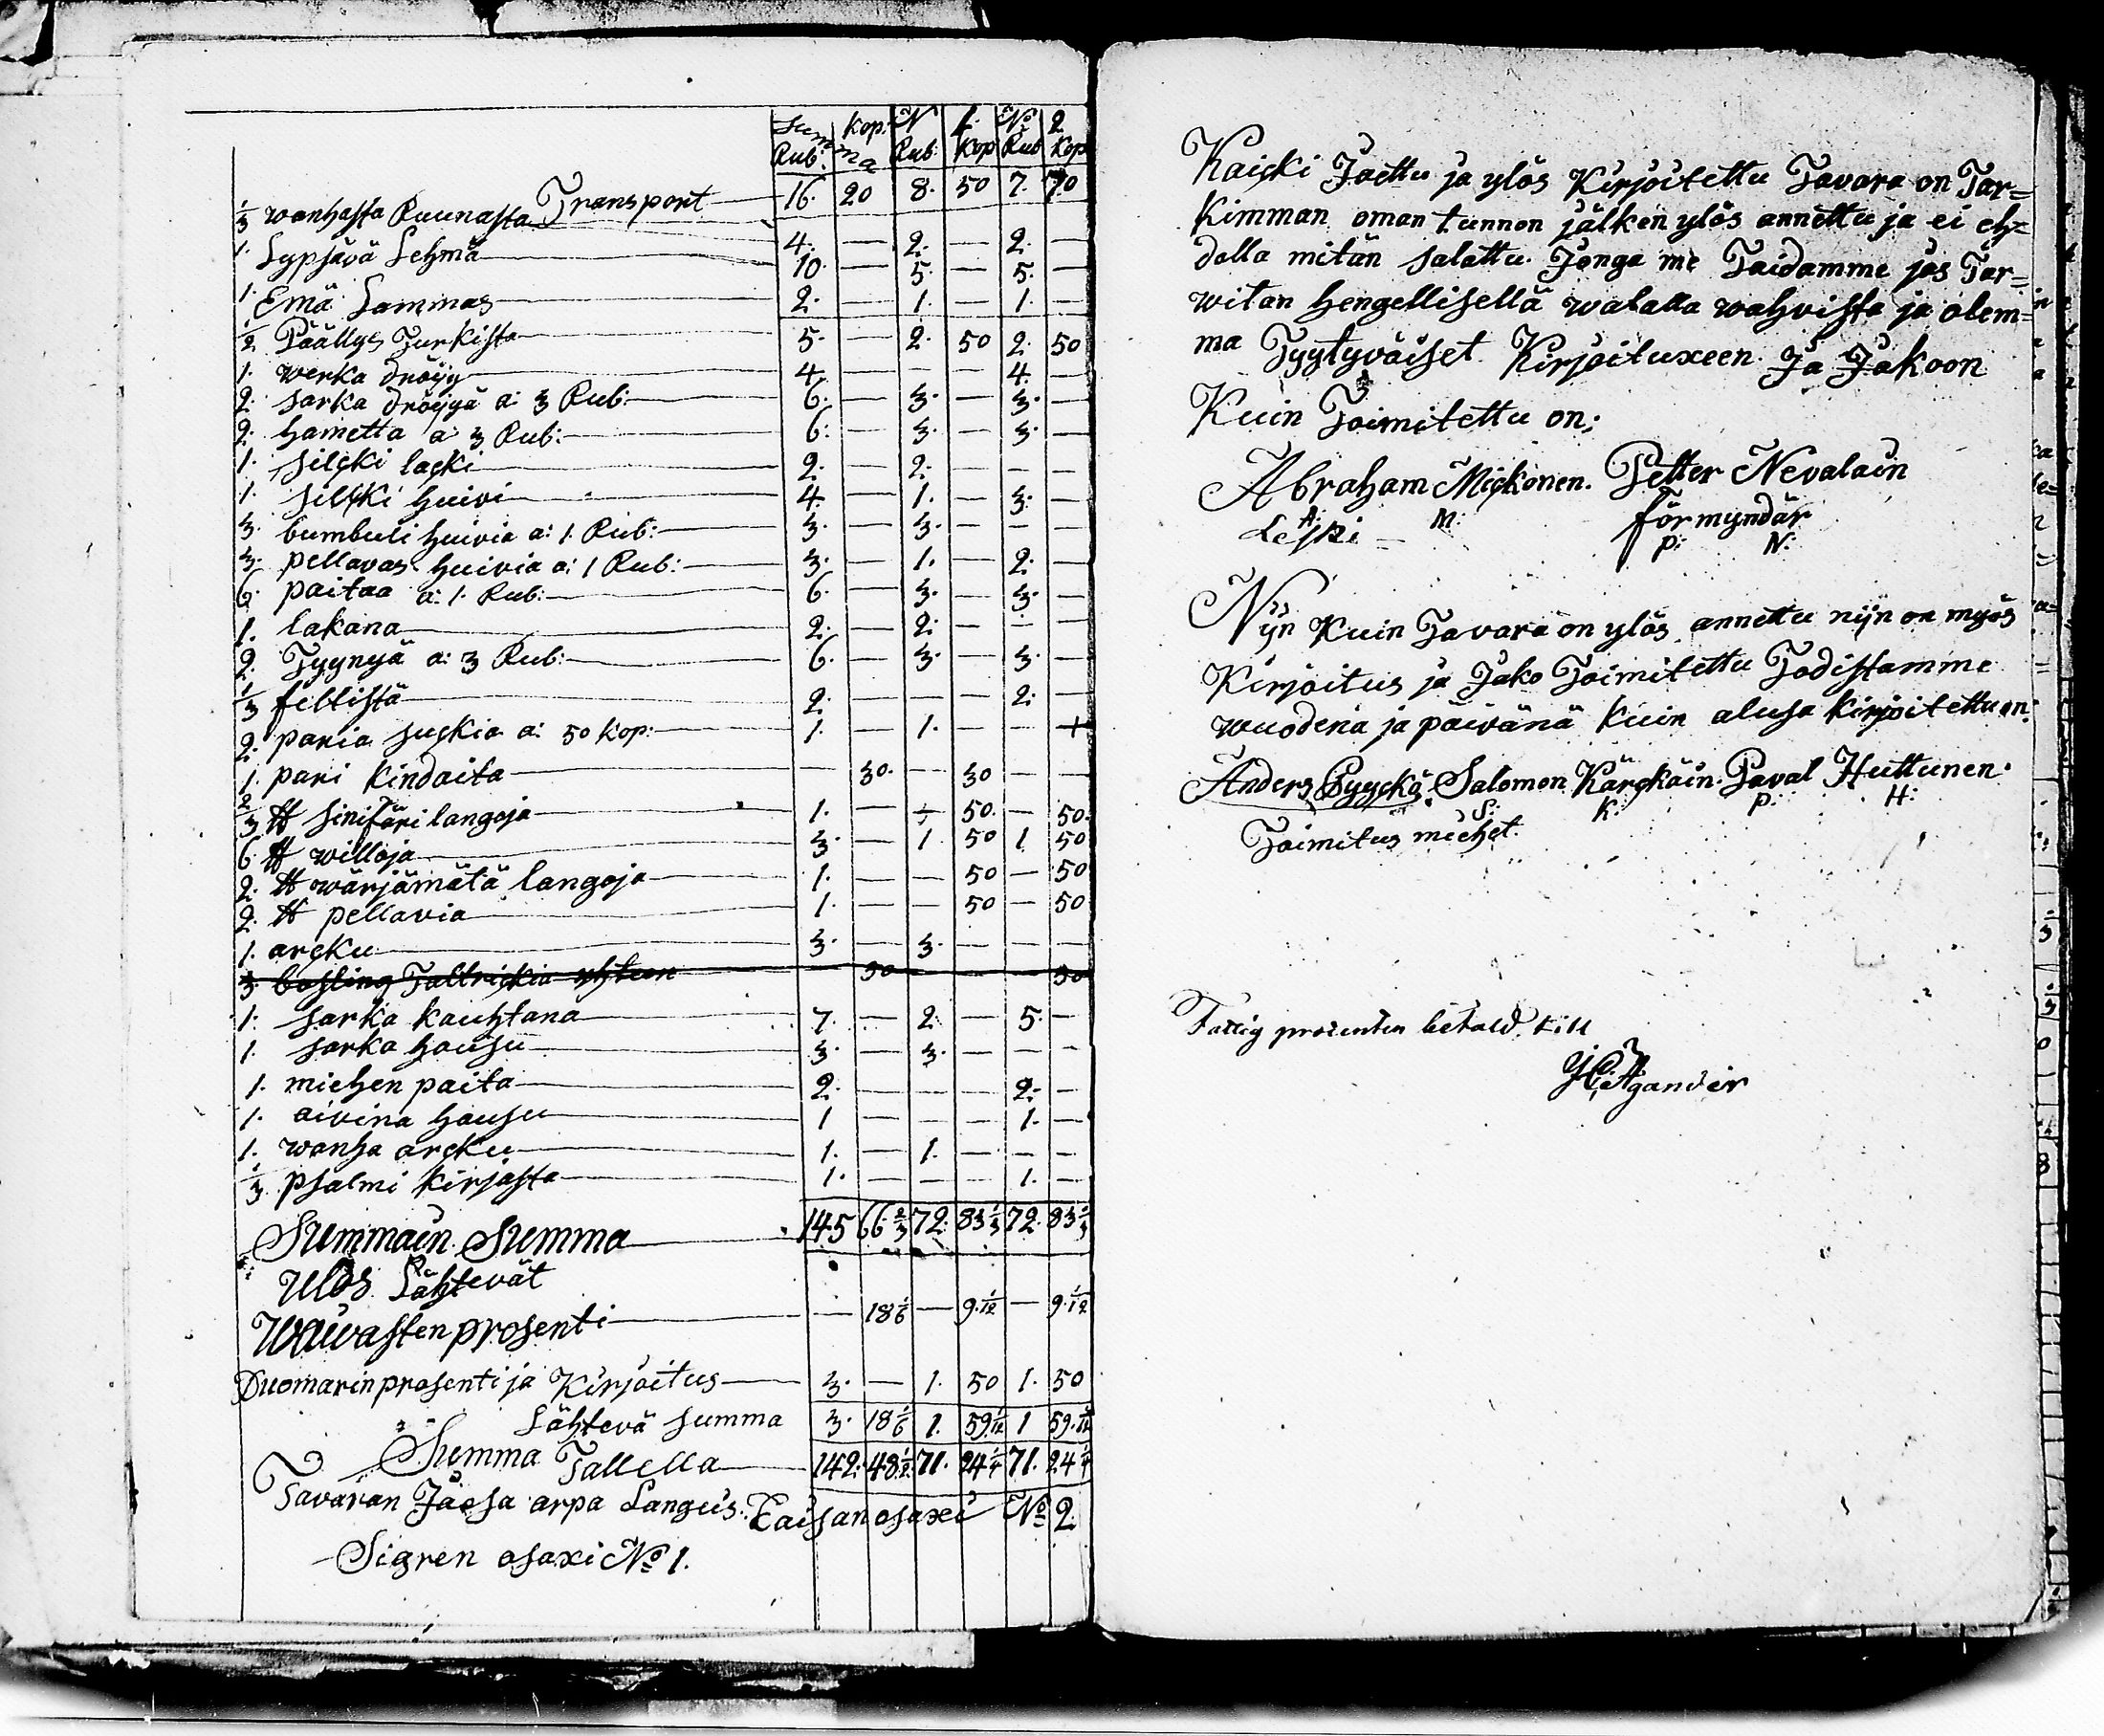 Summa Kop: N 1. No 2
Rub: Rub: Kop Rub Kop
Transport 16. 20 8. 50 7. 70
1/3 wanhasta Ruunasta 4. — 2. — 2. —
1. Lypsävä Lehmä 10. — 5. — 5. —
1. Emä Lammas 2. — 1. — 1. —
1/2 Päällys Turkista 5. — 2. 50 2. 50
1. werka dröijy 4. — — — 4. —
2. sarka dröijyä a: 3 Rub: 6. — 3. — 3. —
2. hametta a: 3 Rub: 6. — 3. — 3. —
1. silcki lacki 2. — 2. — — —
1. silcki huivi 4. — 1. — 3. —
3. bumbuli huivia a: 1. Rub: 3. — 3. — — —
3. pellavas huivia a: 1 Rub: 3. — 1. — 2. —
6. paitaa a: 1. Rub: 6. — 3. — 3. —
1. lakana 2. — 2. — — —
2. Tyynyä a: 3 Rub: 6. — 3. — 3. —
1/3 fellistä 2. — — — 2. —
2. paria suckia a: 50 Kop: 1. — 1. — —
1. pari Kindaita — 30. — 30 — —
2/3 ℔ sinifäri langoja 1. — — 50. — 50.
6. ℔ willoja 3. — 1 50 1 50
2. ℔ wärjämätä langoja 1. — — 50 — 50
2. ℔ pellavia 1. — — 50 — 50
1. arcku 3. — 3. — — —
3. Tallrickia yhteen — 50 — — — 50
1. sarka kauhtana 7. — 2. — 5. —
1. sarka housu 3. — 3. — — —
1. miehen paita 2. — — — 2. —
1. aivina housu 1 — — — 1. —
1. wanha arcku 1. — 1. — — —
1/3 psalmi kirjasta 1. — — — 1. —
Summain Summa 145 66 2/3 72. 83 1/3 72. 83 1/3
Ulos Lähtevät
Waivasten prosenti — 18 1/6 — 9. 1/12 — 9. 1/12
Duomarin prosenti ja Kirjoitus 3. — 1. 50 1. 50
Lähtevä summa 3. 18 1/6 1. 59 1/12 1 59. 1/12
Summa Tallella 142. 48 1/2 71. 24 1/4 71. 24 1/4
Tavaran Jaosa arpa Langeis: Caisan osaxi No 2.
Sigren osaxi No 1.
Kaicki Jaettu ja ylös Kirjoitettu Tavara on Tar=
Kimman oman tunnon jälken ylös annettu ja ei eh=
dolla mitän salattu. Jonga me Taidamme jos Tar=
witan hengellisellä walalla wahvista ja olem=
ma Tyytyväiset Kirjoituxeen Ja Jakoon
Kuin Toimitettu on;
Abraham Mickonen. Petter Nevalain
A: M: förmyndär
Leski P: N:
Nijn Kuin Tavara on ylös annettu nijn on myös
Kirjoitus ja Jako Toimitettu Todistamme
wuodena ja päivänä Kuin alusa kirjoitettu on:
Anders Pyyckö. Salomon Kärckäin. Paval Huttunen.
S: K: P: H:
Toimitus miehet.
Fattig procenten betald, till
Agander